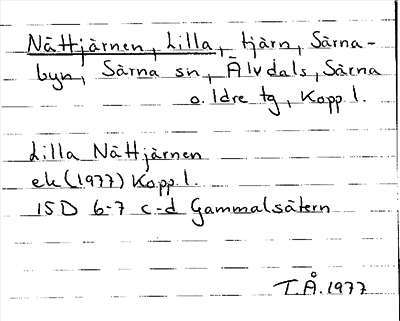 Nättjärnen, Lilla, tjärn, Särna-
byn, Särna sn, Älvdals, Särna
o. Idre tg, Kopp l.
Lilla Nättjärnen
ek (1977) Kopp l.
15D 6-7 c-d Gammalsätern
T.Å. 1977